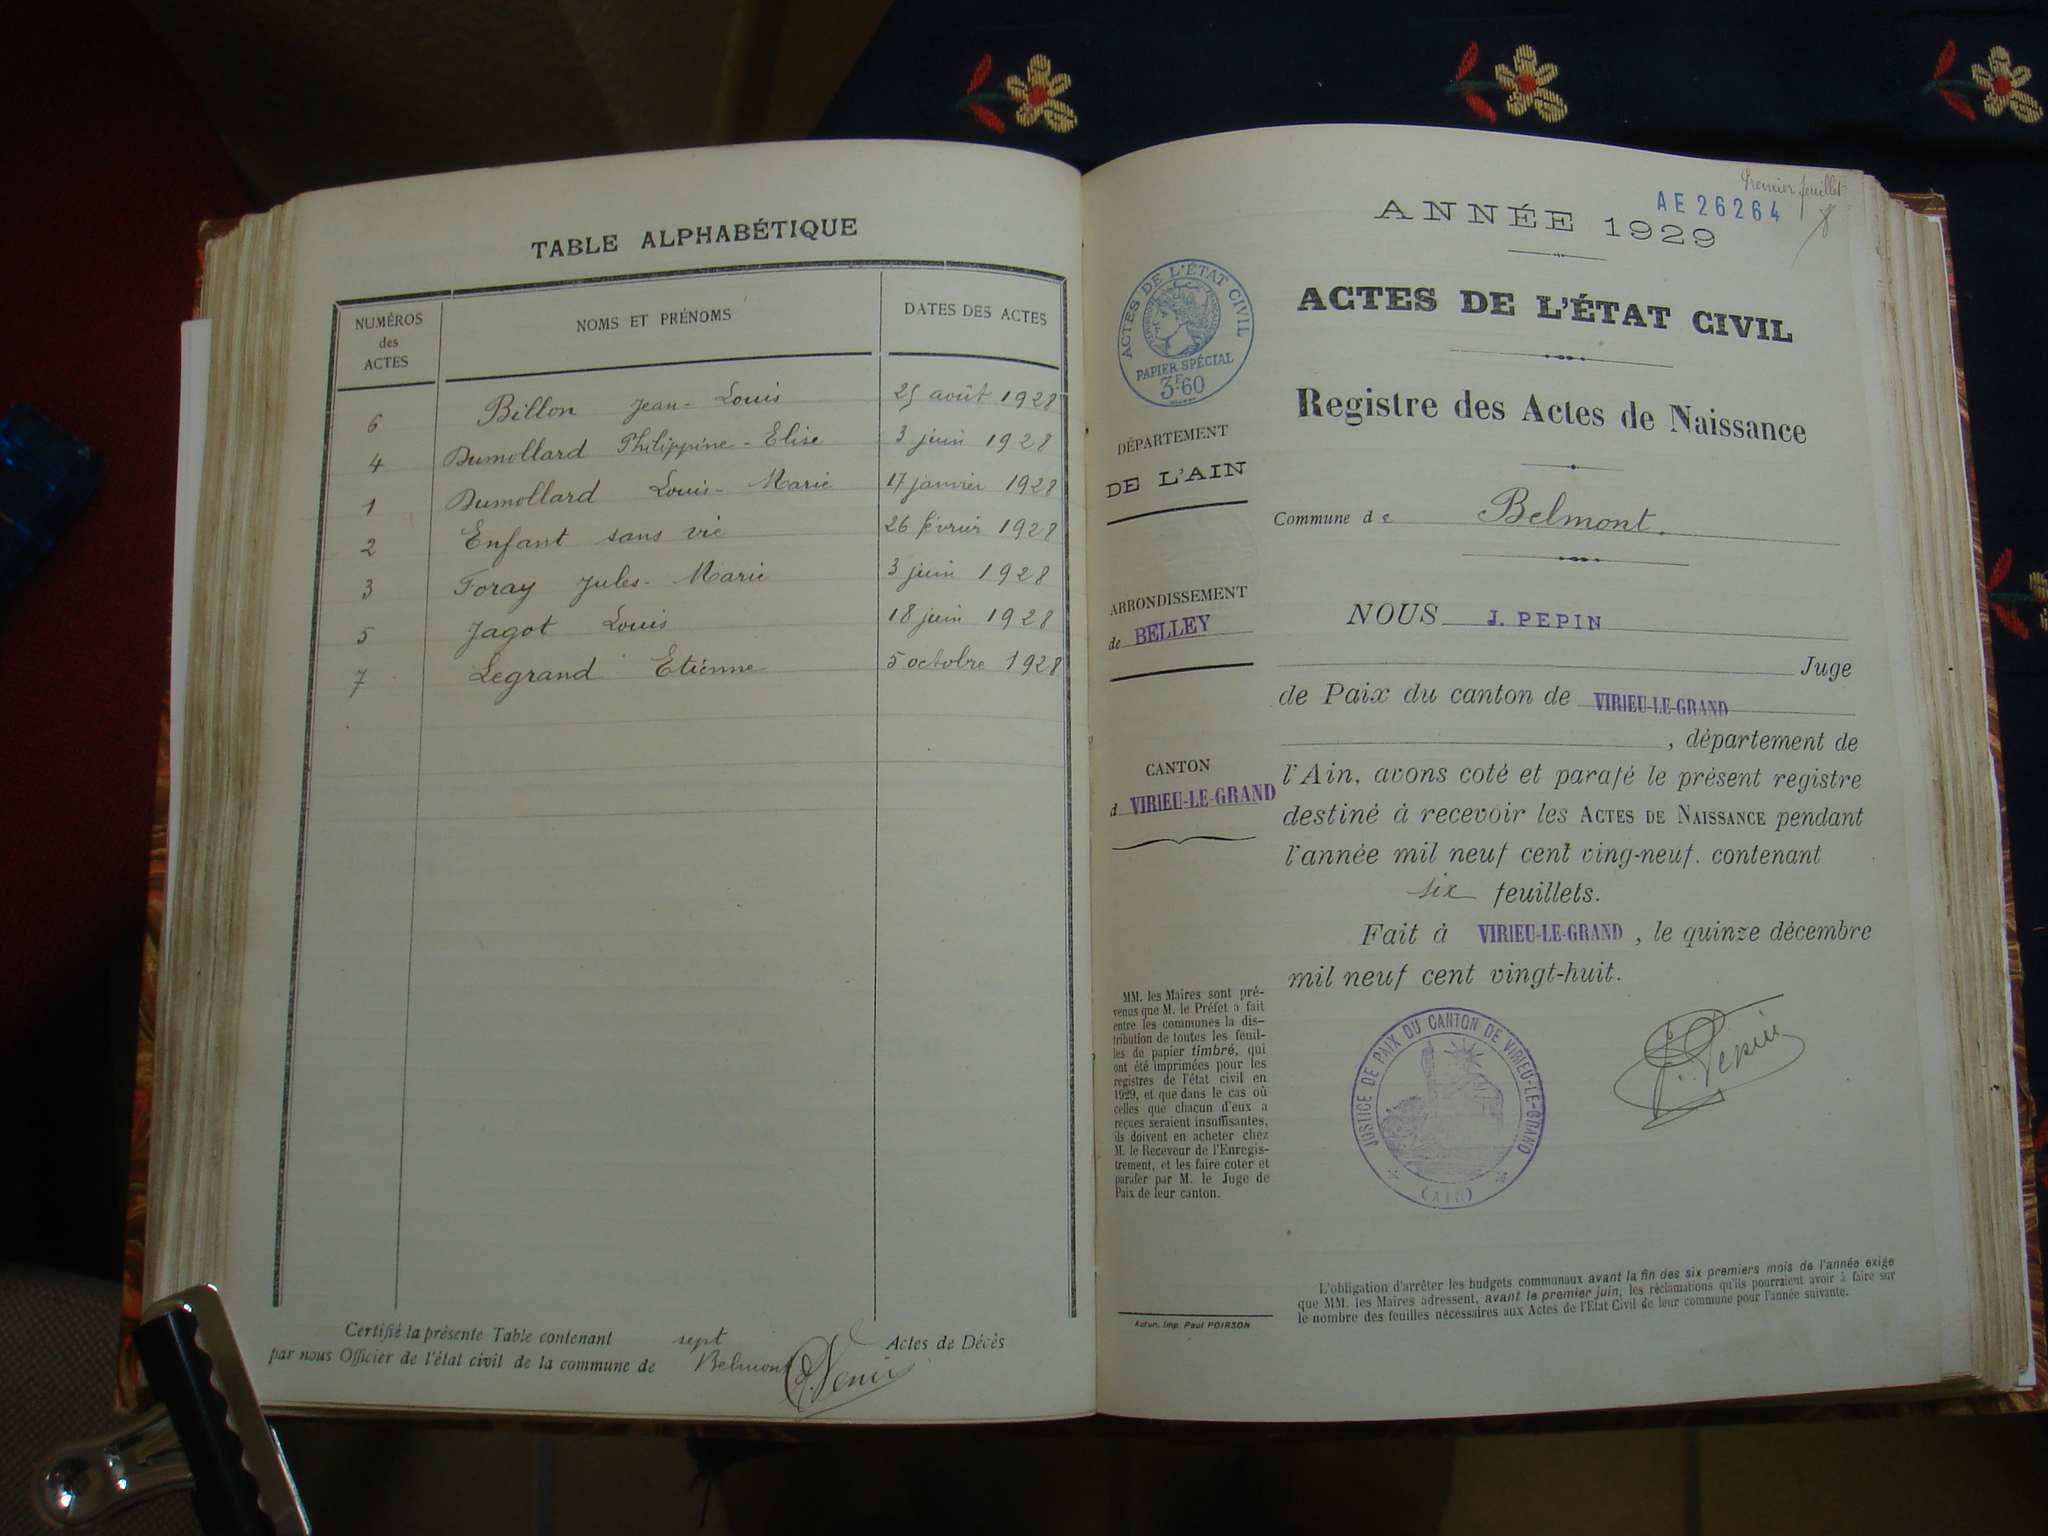 TABLE ALPHABÉTIQUE
NUMÉROS des ACTES
NOMS ET PRÉNOMS
DATES DES ACTES
6 Billon Jean-Louis 25 août 1928
4 Dumollard Philippine-Elise 3 juin 1928
1 Dumollard Louis-Marie 17 janvier 1928
2 Enfant sans vie 26 février 1928
3 Foray Jules-Marie 3 juin 1928
5 Jagot Louis 18 juin 1928
7 Legrand Etienne 5 octobre 1928
Certifié la présente Table contenant sept Actes de Décès
par nous Officier de l'état civil de la commune de Belmont
Premier feuillet
AE 26264
ANNÉE 1929
ACTES DE L'ÉTAT CIVIL
PAPIER SPÉCIAL
3F60
ACTES DE L'ÉTAT CIVIL
Registre des Actes de Naissance
DÉPARTEMENT
DE L'AIN
Commune de Belmont.
ARRONDISSEMENT
de BELLEY
CANTON
d VIRIEU-LE-GRAND
NOUS J. PEPIN
Juge
de Paix du canton de VIRIEU-LE-GRAND
, département de
l'Ain, avons coté et parafé le présent registre
destiné à recevoir les ACTES DE NAISSANCE pendant
l'année mil neuf cent ving-neuf. contenant
six feuillets.
Fait à VIRIEU-LE-GRAND, le quinze décembre
mil neuf cent vingt-huit.
MM. les Maires sont pré-
venus que M. le Préfet a fait
entre les communes la dis-
tribution de toutes les feuil-
les de papier timbré, qui
ont été imprimées pour les
registres de l'état civil en
1929, et que dans le cas où
celles que chacun d'eux a
reçues seraient insuffisantes,
ils doivent en acheter chez
M. le Receveur de l'Enregis-
trement, et les faire coter et
parafer par M. le Juge de
Paix de leur canton.
JUSTICE DE PAIX DU CANTON DE VIRIEU-LE-GRAND
(AIN)
J. Pepin
L'obligation d'arrêter les budgets communaux avant la fin des six premiers mois de l'année exige
que MM. les Maires adressent, avant le premier juin, les réclamations qu'ils pourraient avoir à faire sur
le nombre des feuilles nécessaires aux Actes de l'Etat Civil de leur commune pour l'année suivante.
Autun, Imp. Paul POIRSON